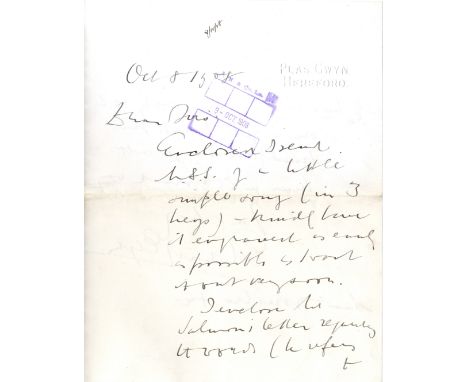 8/10/08
PLAS GWYN
HEREFORD.
Oct 8 1908
9-OCT 1908
Dear Sirs
Enclosed I send
M.S.S. of a little
simple song (in 3
keys) — kindly have
it engraved as early
as possible as I want
it out very soon.
I enclose Mr
Salmon's letter regarding
the words (he refers
to